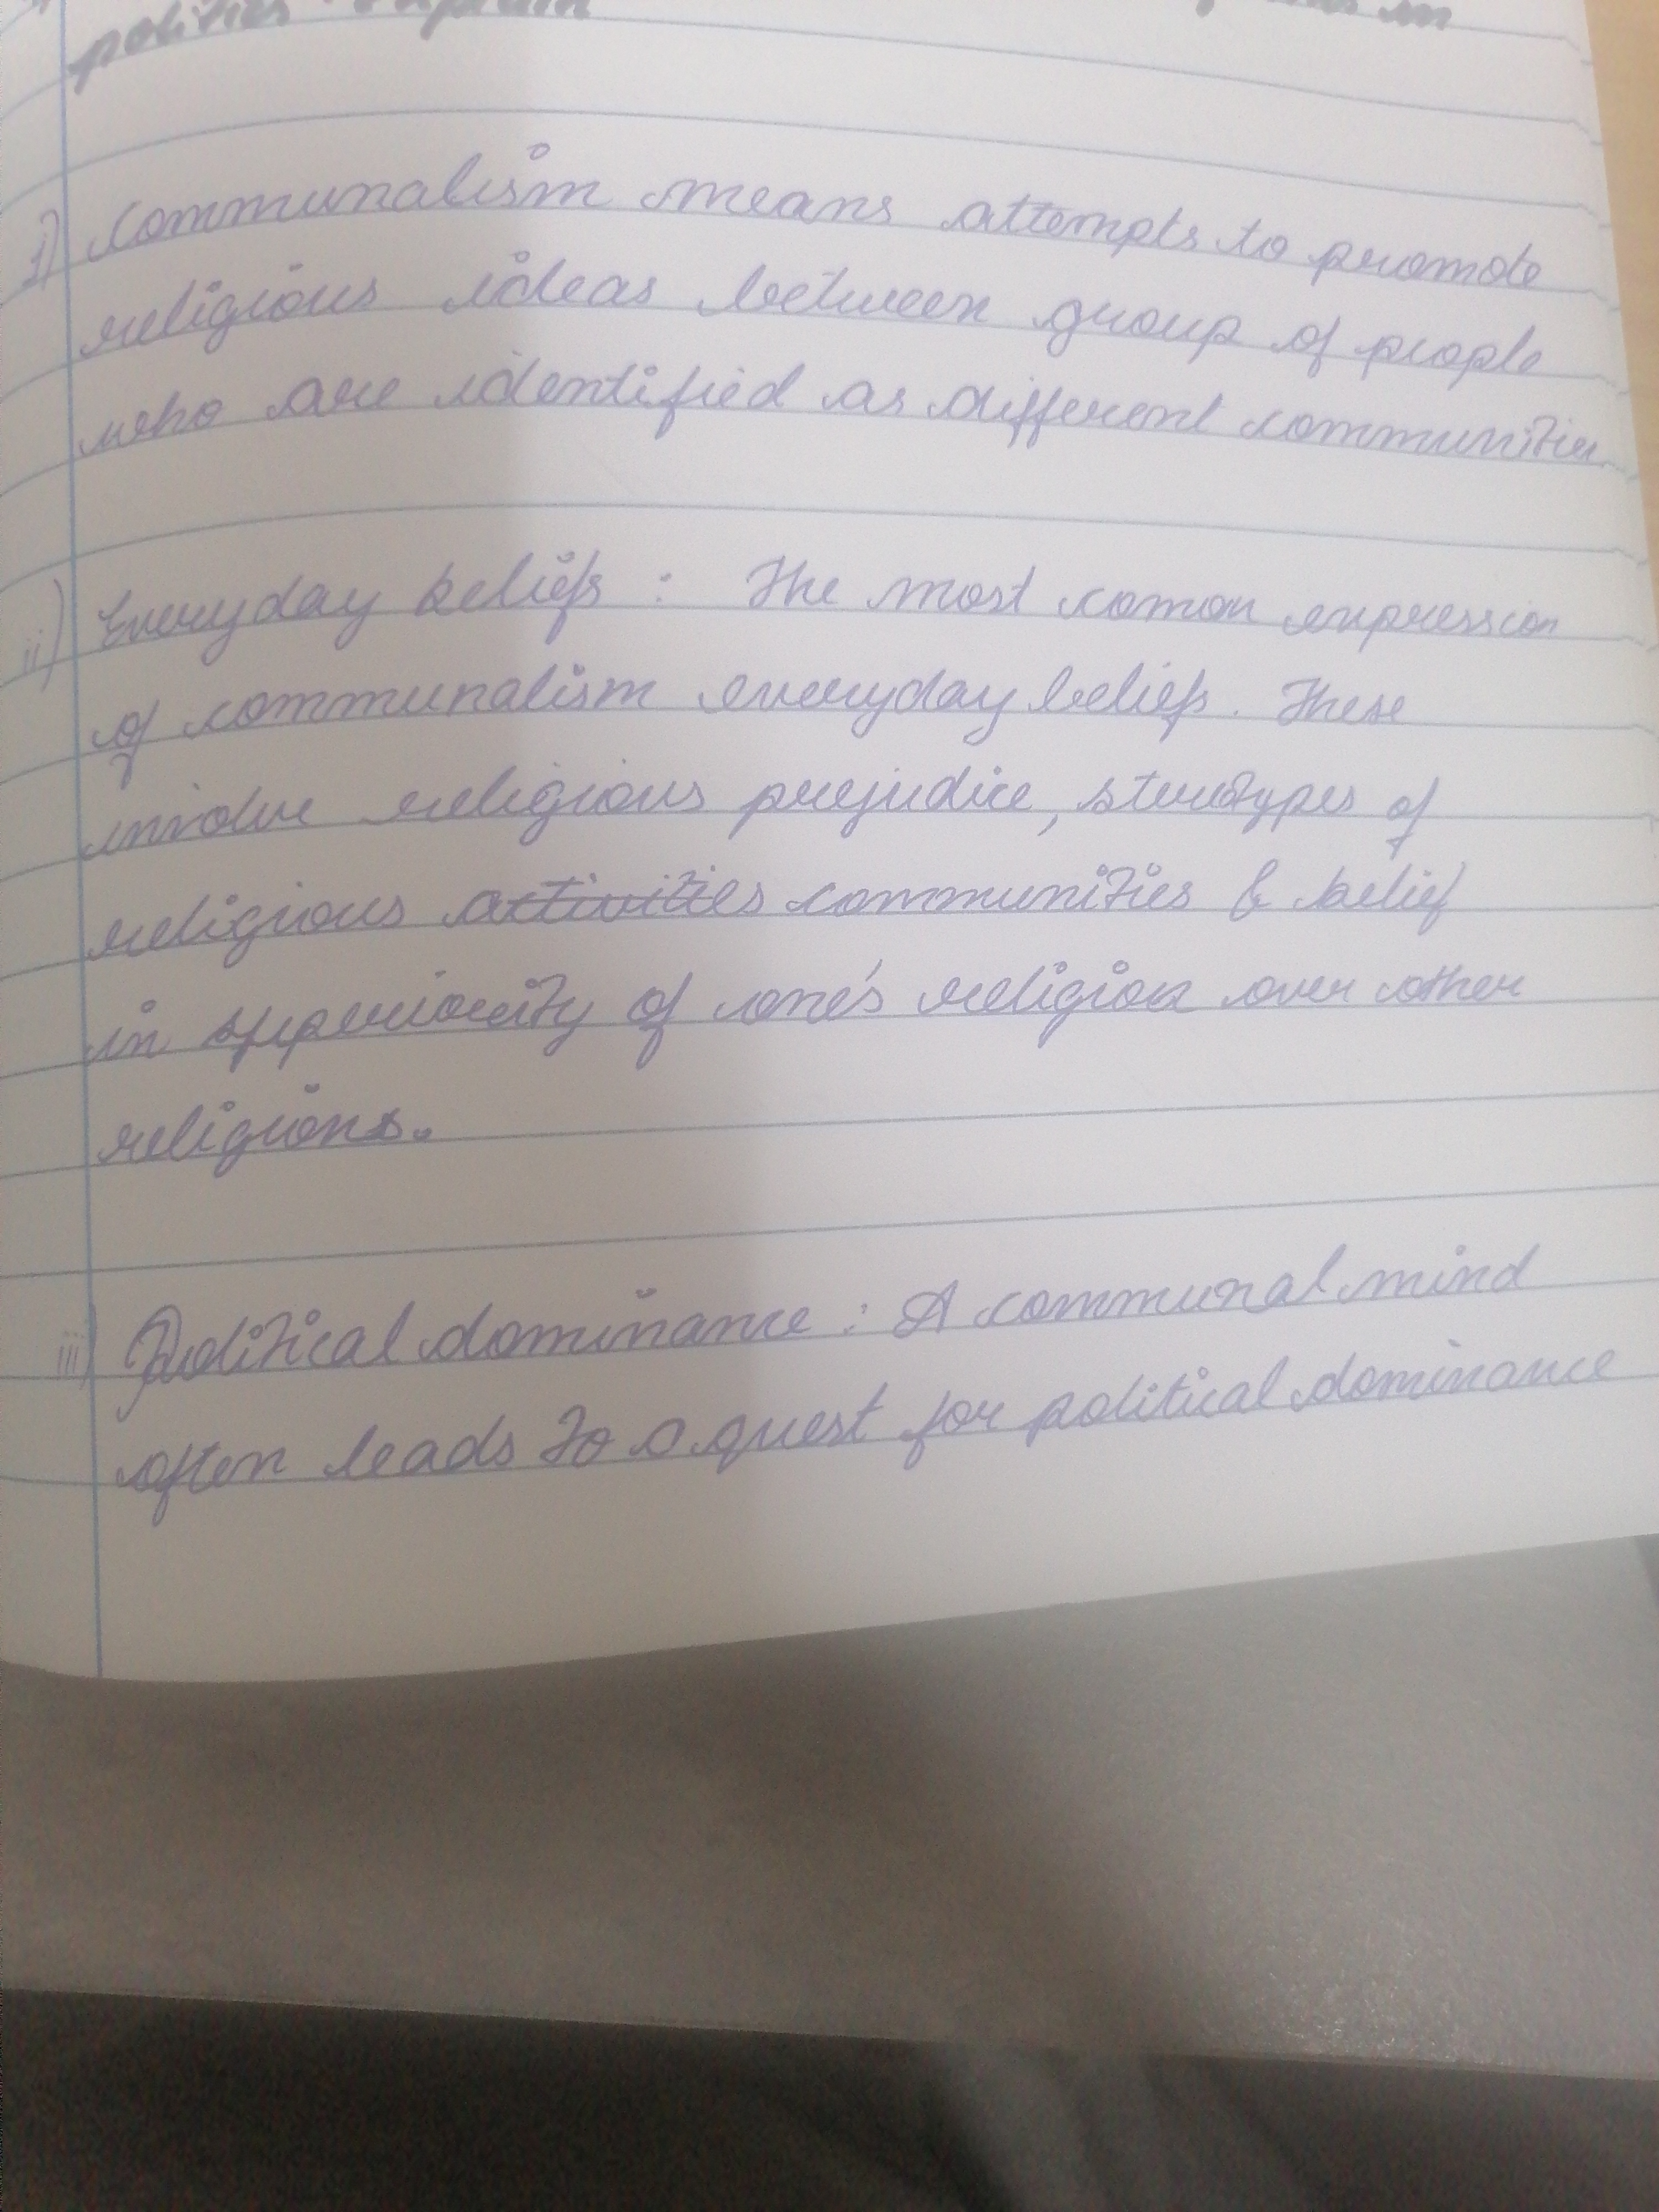 politics. Explain in
i) Communalism means attempts to promote
religious ideas between group of people
who are identified as different communities
ii) Everyday beliefs : The most comon expression
of communalism everyday beliefs. These
involve religious prejudice, sterotypes of
religious activities communities & belief
in superiority of one's religion over other
religions.
iii) Political dominance : A communal mind
often leads to a quest for political dominance